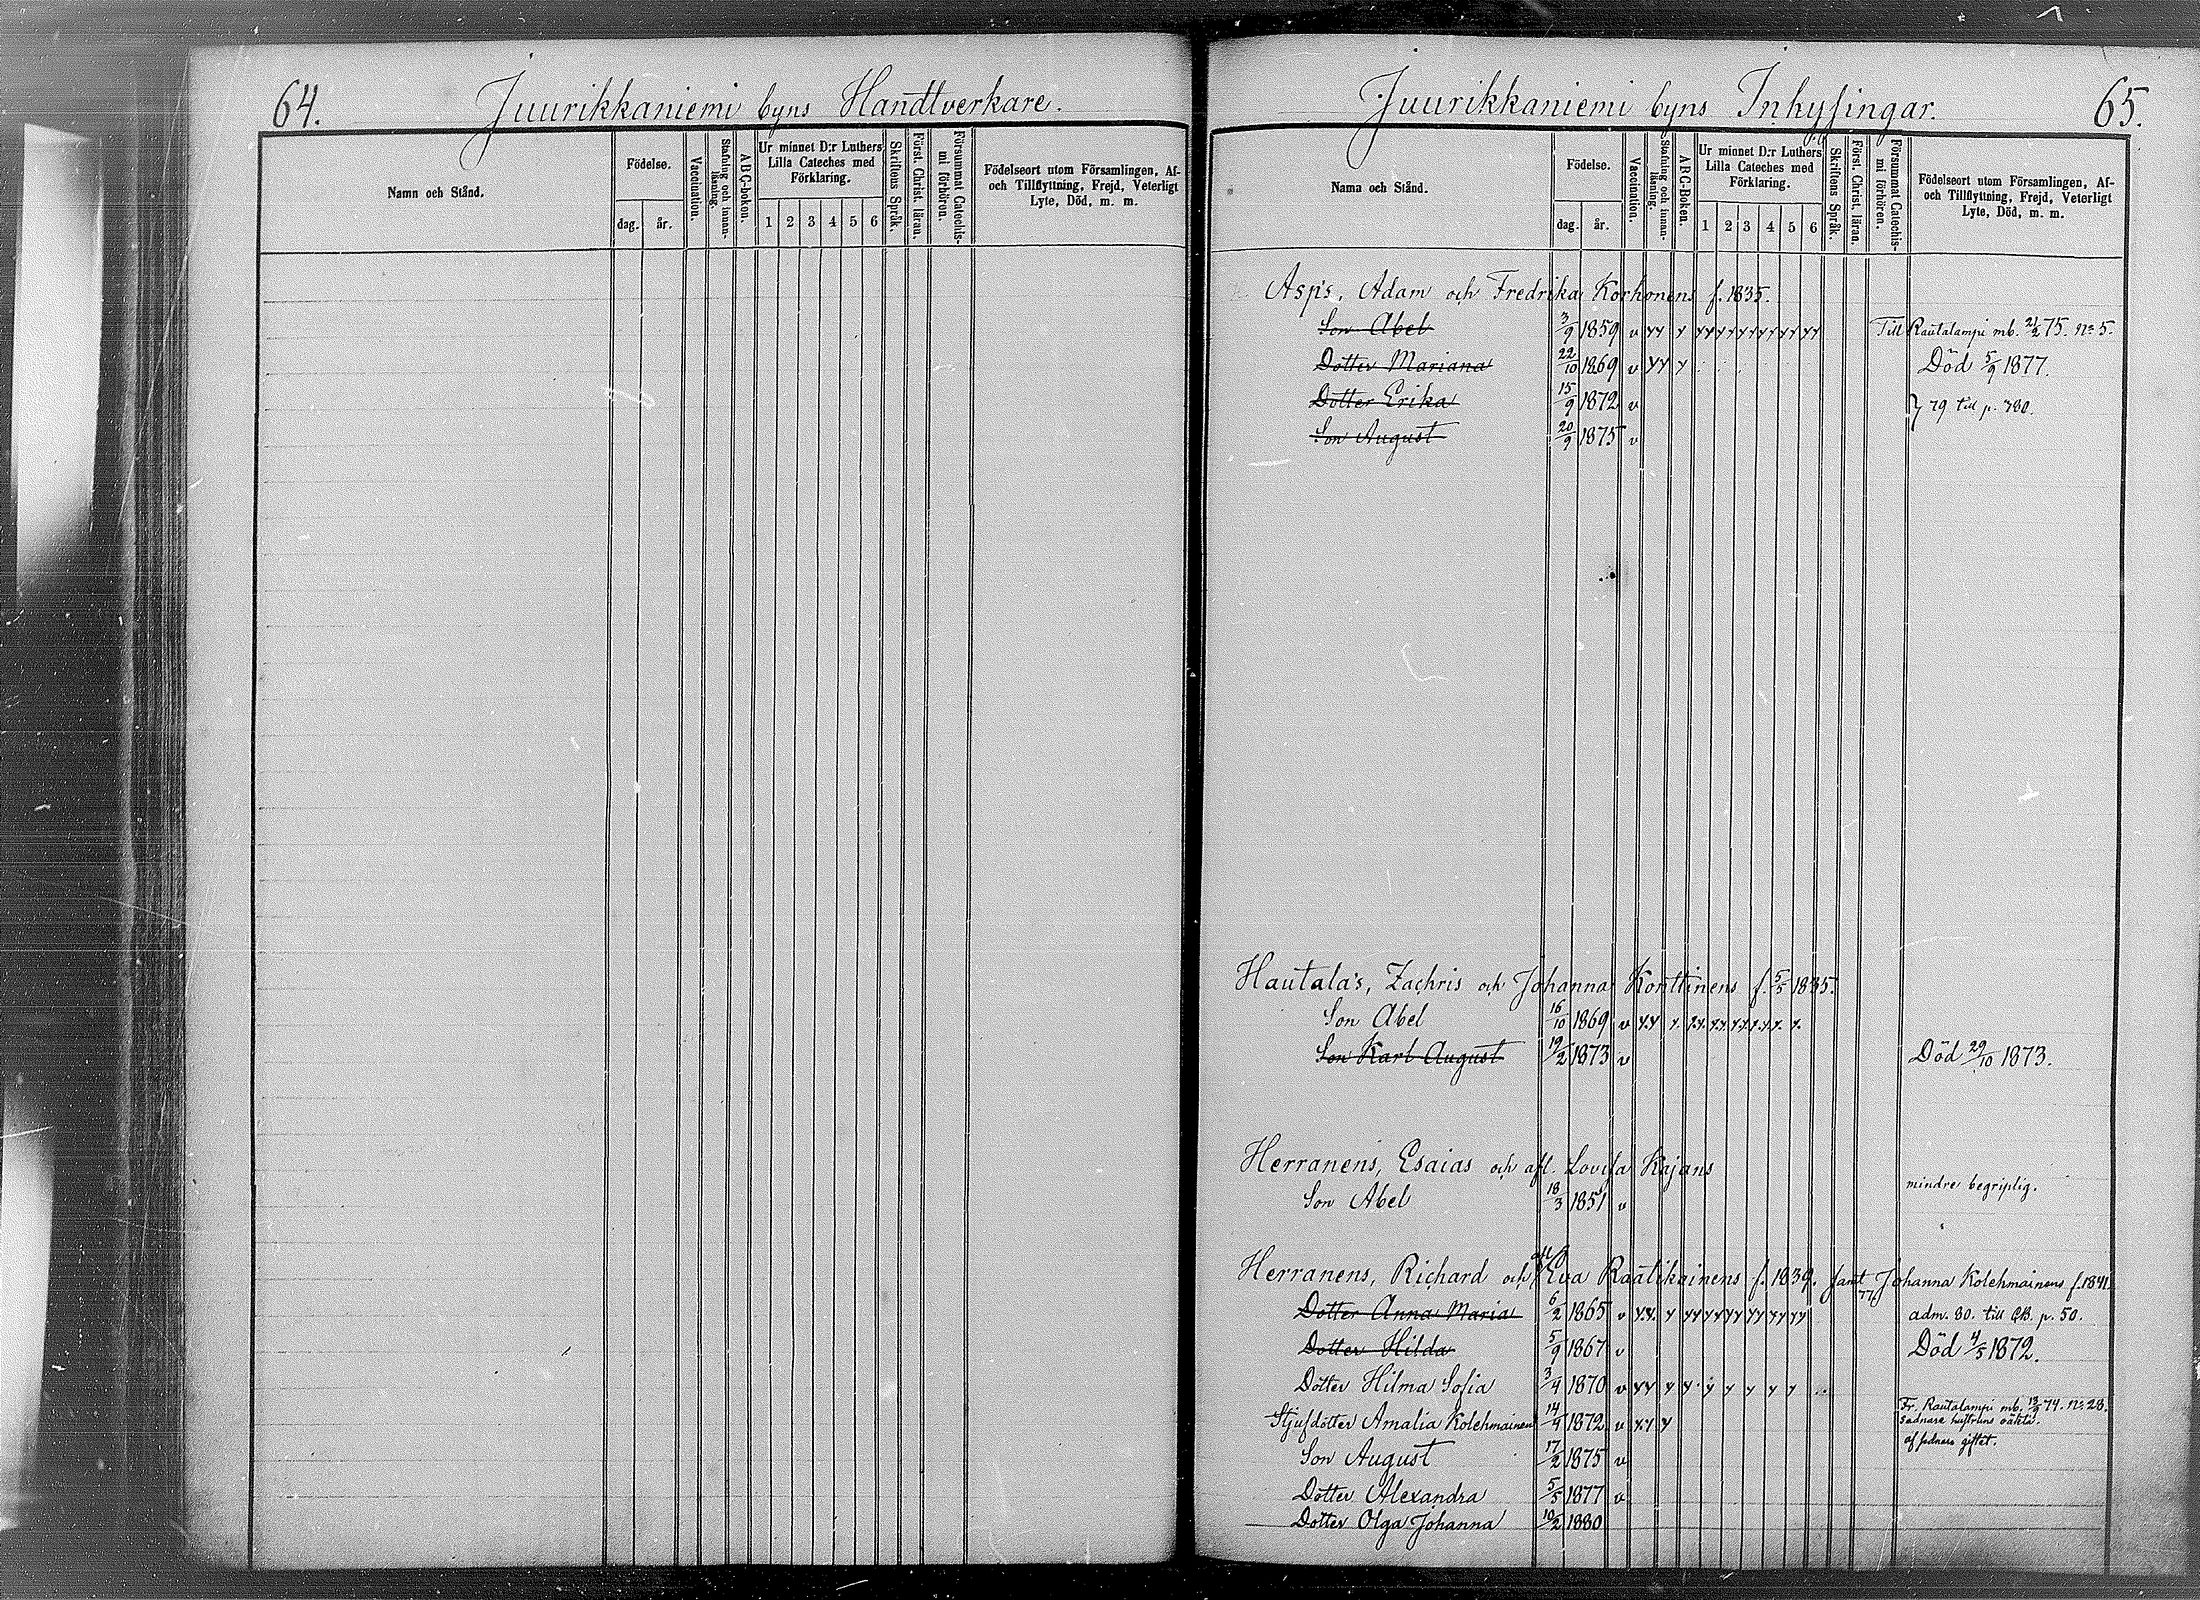 64.
Juurikkaniemi byns Handtverkare.
Namn och Stånd.
Födelse.
dag.
år.
Vaccination.
Stafning och innanläsning.
ABC-boken.
Ur minnet D:r Luthers Lilla Cateches med Förklaring.
1 2 3 4 5 6
Skriftens Språk.
Först. Christ. läran.
Försummat Catechismi förhören.
Födelseort utom Församlingen, Af- och Tillflyttning, Frejd, Veterligt Lyte, Död, m. m.
Juurikkaniemi byns Inhysingar.
65.
Nama och Stånd.
Födelse.
dag.
år.
Vaccination.
Stafning och innanläsning.
ABC-Boken.
Ur minnet D:r Luthers Lilla Cateches med Förklaring.
1 2 3 4 5 6
Skriftens Språk.
Först. Christ. läran.
Försummat Catechismi förhören.
Födelseort utom Församlingen, Af- och Tillflyttning, Frejd, Veterligt Lyte, Död, m. m.
Asp's, Adam och Fredrika Korhonens f. 1835.
Son Abel 3/9 1859 v Till Rautalampi mb. 21/2 75. No 5.
Dotter Mariana 22/10 1869 v Död 5/9 1877.
Dotter Erika 15/9 1872 v } 79 till p. 780.
Son August 20/9 1875 v
Hautala's, Zachris och Johanna Konttinens f. 5/5 1835.
Son Abel 16/10 1869 v
Son Karl August 19/2 1873 v Död 29/10 1873.
Herranens, Esaias och afl. Lovisa Kajans
Son Abel 18/3 1851 v mindre begriplig.
Herranens, Richard och afl. Eva Raatikainens f. 1839. samt Johanna Kolehmainens f. 1841.
Dotter Anna Maria 6/2 1865 v adm. 80. till CB. p. 50.
Dotter Hilda 5/9 1867 v Död 4/5 1872.
Dotter Hilma Sofia 3/4 1870 v
Stjufdotter Amalia Kolehmainen 14/9 1872 v Fr. Rautalampi mb. 13/9 74. No 28.
sednare hustruns oäkta.
Son August 17/2 1875 v af sednare giftet.
Dotter Alexandra 5/5 1877 v
Dotter Olga Johanna 10/2 1880